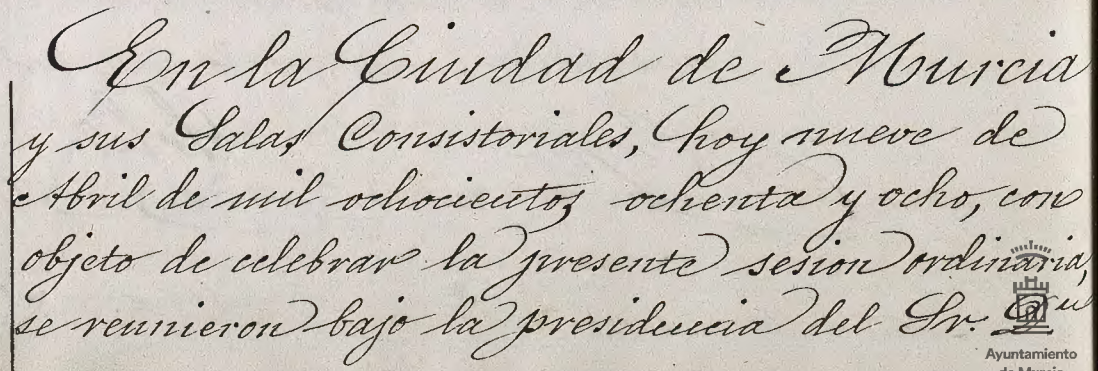 En la Ciudad de Murcia
y sus Salas Consistoriales, hoy nueve de
Abril de mil ochocientos ochenta y ocho, con
objeto de celebrar la presente sesion ordinaria,
se reunieron bajo la presidencia del Sr.
Ayuntamiento
de Murcia